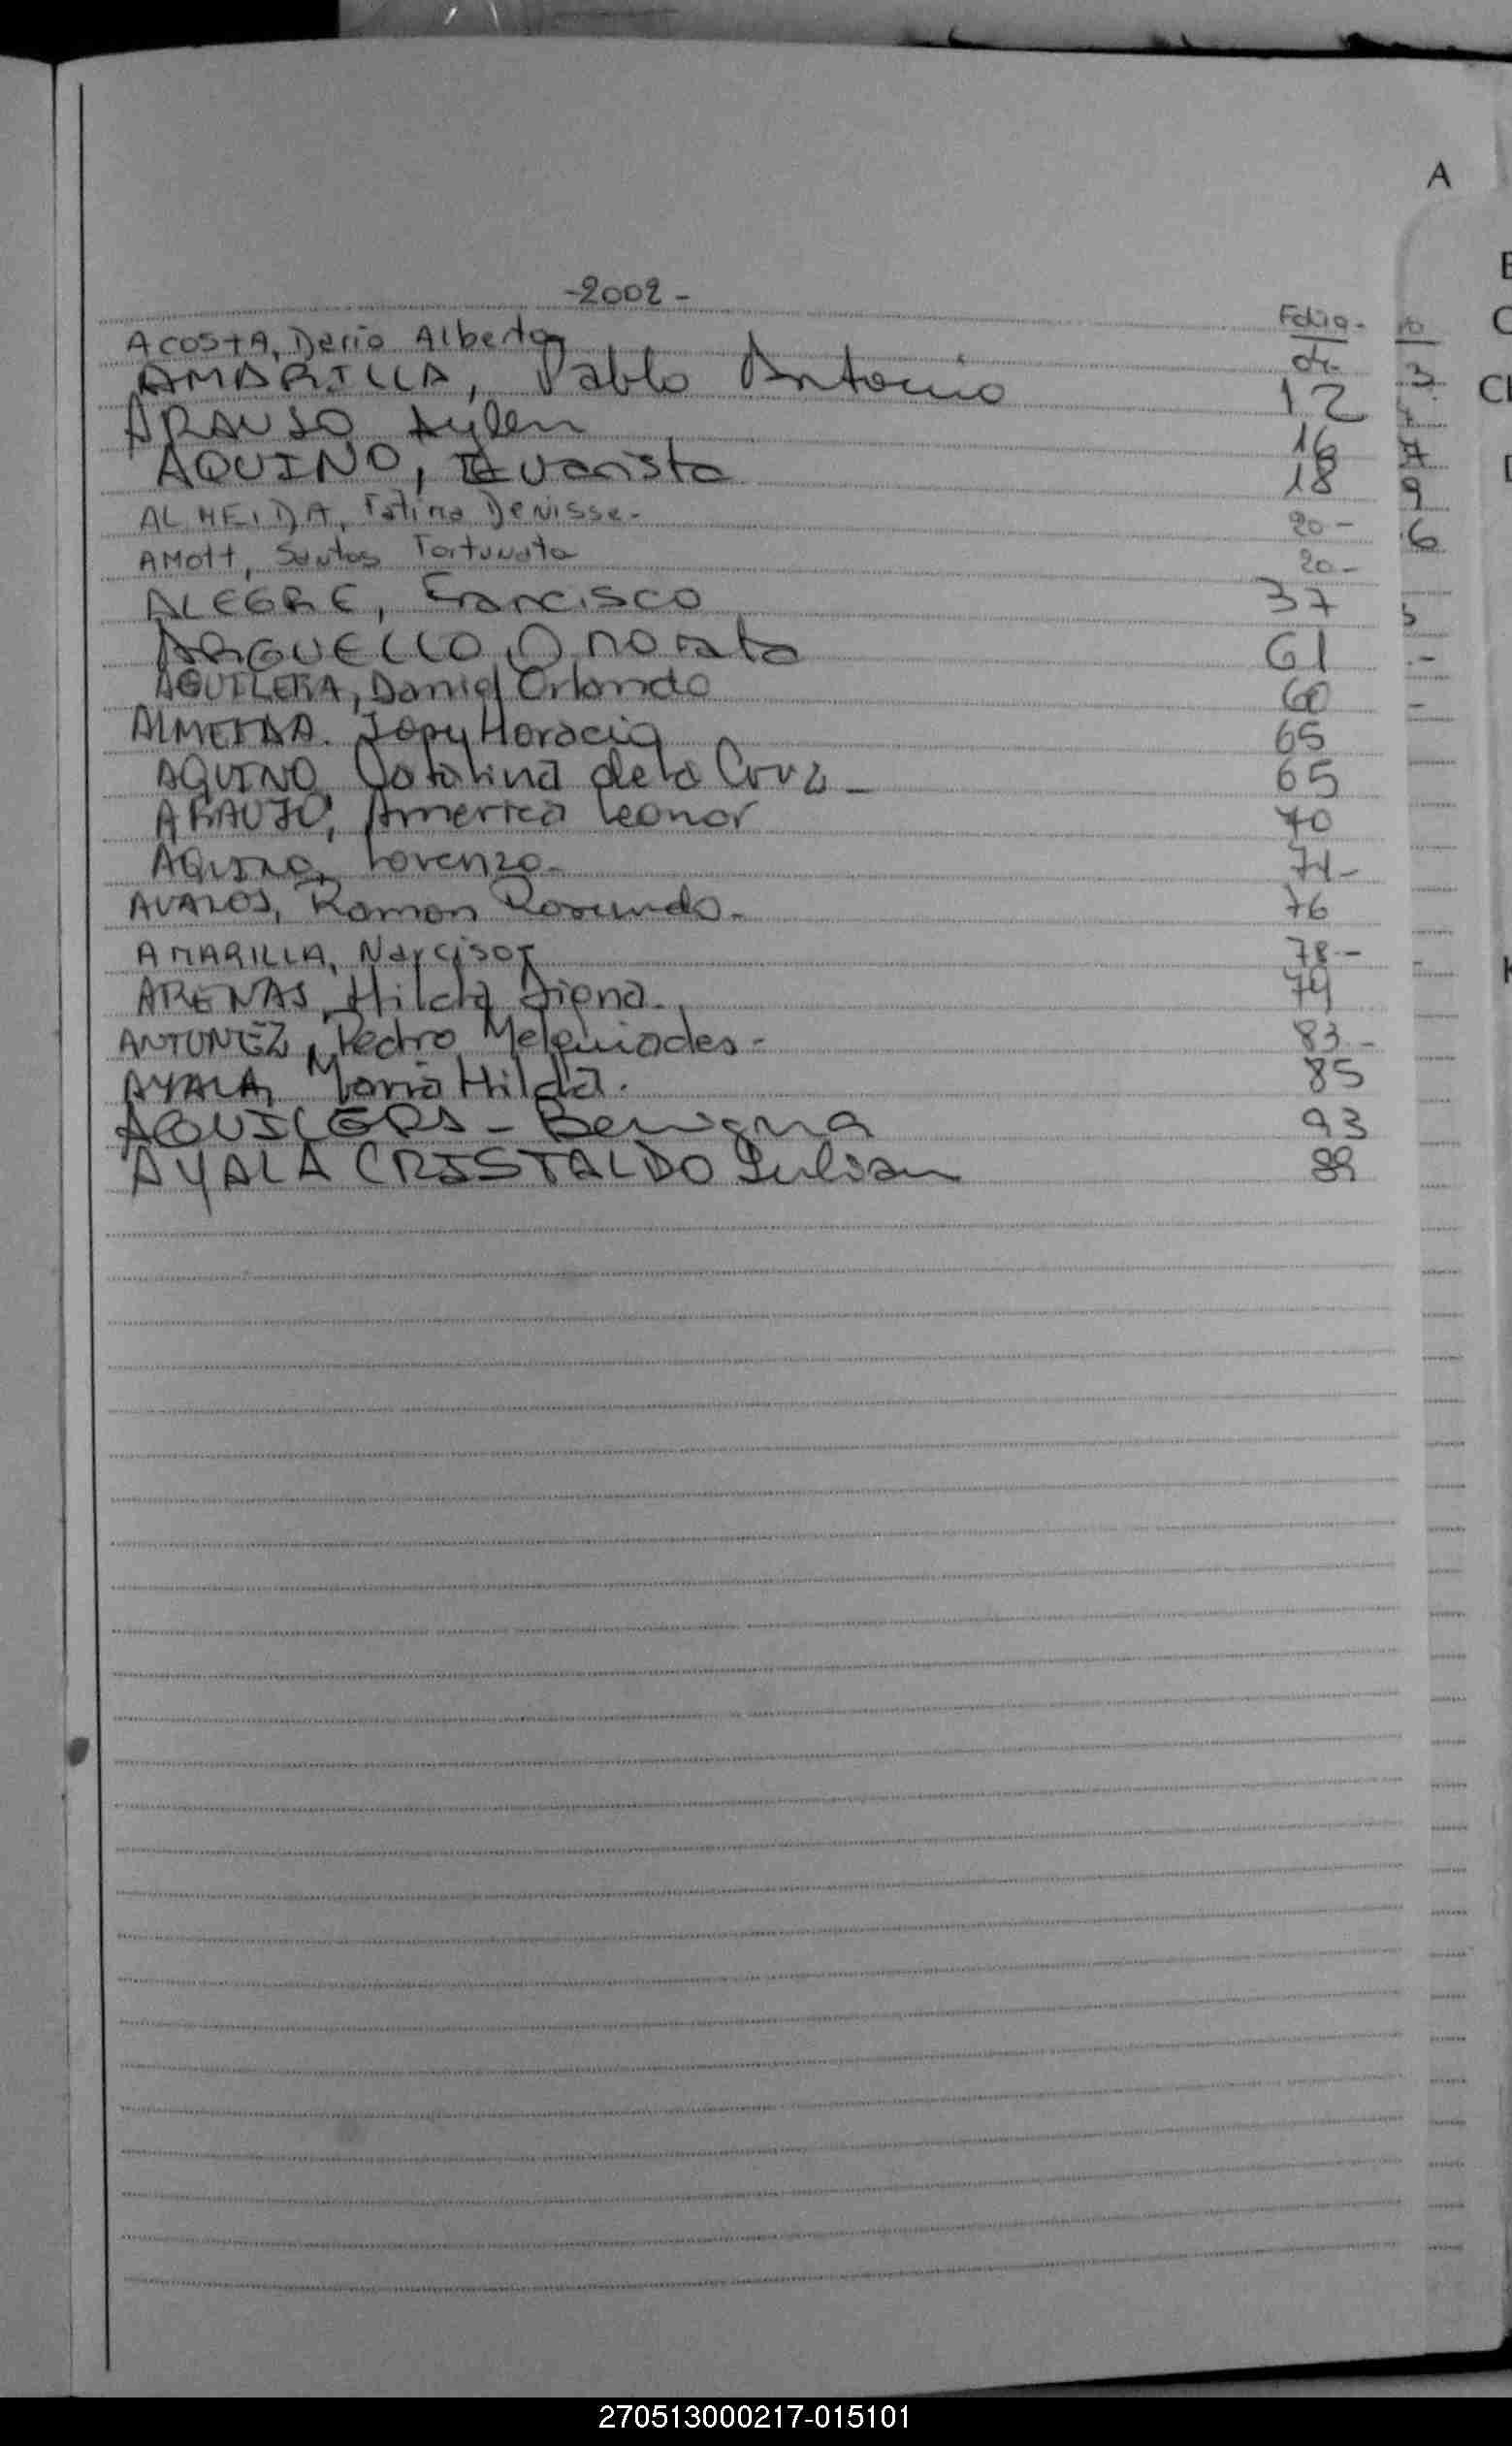 A
-2002-
Folio.
ACOSTA, Dario Alberto 04
AMARILLA, Pablo Antonio 12
ARAUJO Aylen 16
AQUINO, Evaristo 18
ALMEIDA, Fatima Denisse- 20-
AMOTT, Santos Fortunato 20-
ALEGRE, Francisco 37
ARGUELLO, Onorato 61
AGUILERA, Daniel Orlando 60
ALMEIDA. Horacio 65
AQUINO, Catalina de la Cruz - 65
ARAUJO, America Leonor 70
AQUINO, Lorenzo- 71-
AVALOS, Ramon Rosendo- 76
AMARILLA, Narciso 78-
ARENAS, Hilda Digna. 79
ANTUNEZ, Pedro Melquiades- 83-
AYALA, Maria Hilda. 85
AGUILERA - Benigna 93
AYALA CRISTALDO Julian 89
270513000217-015101